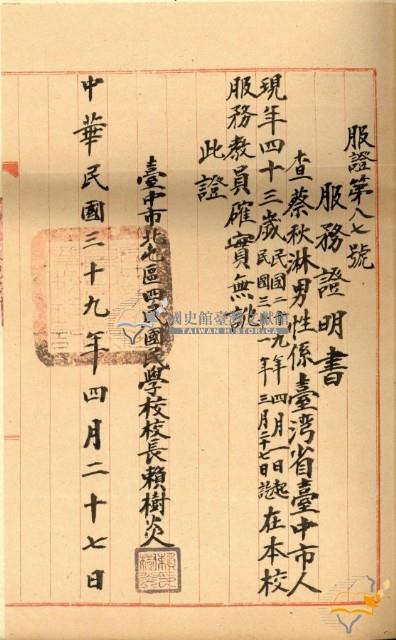 服證第八七號
服務證明書
查蔡秋淋男性係臺灣省臺中市人
現年四十三歲民國二九年四月一日起
民國三 年三月二十七日訖在本校
服務教員確實無訛
此證
臺中市北屯區四民國民學校校長賴樹炎
中華民國三十九年四月二十七日
國史館臺灣文獻館
TAIWAN HISTORICA